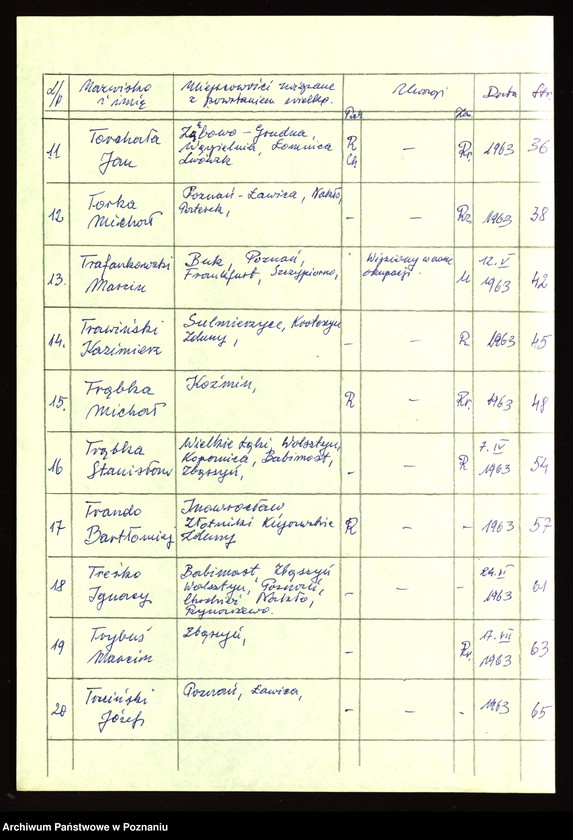 L/p Nazwisko i imię Miejscowości związane z powstaniem wielkp. Uwagi Data Str.
11 Torchała Jan
Ząbowo - Grudna,
Węgielnia, Łomnica
Lwówek
R
Ch
-
Rr. 1963 36
12 Torka Michał
Poznań - Ławica, Nakło,
Porterek,
- - Rz 1963 38
13. Trafankowski Marcin
Buk, Poznań,
Frankfurt, Szczypiorno,
Więziony w czasie
okupacji.
M 12. V 1963 42
14. Trawiński Kazimierz
Sulmierzyce, Krotoszyn
Zduny,
- - R 1963 45
15. Trąbka Michał
Koźmin,
R - Rr. 1963 48
16 Trąbka Stanisław
Wielkie Łąki, Wolsztyn,
Kopanica, Babimost,
Zbąszyń,
- - R 7. IV 1963 54
17 Trando Bartłomiej
Inowrocław,
Złotniki Kujawskie
Zduny
R - - 1963 57
18 Treśko Ignacy
Babimost, Zbąszyń
Wolsztyn, Poznań,
Chodzież Nakło,
Rynarzewo.
- - - 24. VI 1963 61
19 Trybuś Marcin
Zbąszyń,
- Rr. 17. VII 1963 63
20 Trziński Józef
Poznań, Ławica,
- - - 1963 65
Archiwum Państwowe w Poznaniu